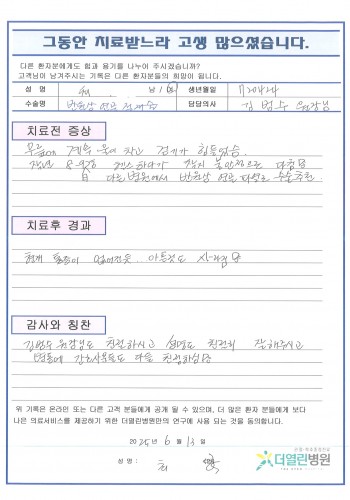 그동안 치료받느라 고생 많으셨습니다.
다른 환자분에게도 힘과 용기를 나누어 주시겠습니까?
고객님이 남겨주시는 기록은 다른 환자분들의 희망이 됩니다.
성 명 최 남 / 여 생년월일
수술명 반월상 연골 담당의사 김범수 원장님
치료전 증상
무릎에 계속 물이 차고 걷기가 힘들었음.
작년 8-9월
다른병원에서 반월상 연골 수술추천
치료후 경과
현재 통증이 없어진듯. 아픈것도 사라짐
감사와 칭찬
김범수 원장님도 친절하시고 설명도 친절히 잘해주시고
병동에 간호사분들도 다들 친절하심
위 기록은 온라인 또는 다른 고객 분들에게 공개 될 수 있으며, 더 많은 환자 분들에게 보다
나은 의료서비스를 제공하기 위한 더열린병원만의 연구에 사용 되는 것을 동의합니다.
2025년 6월 13일
성 명 : 최
더열린병원